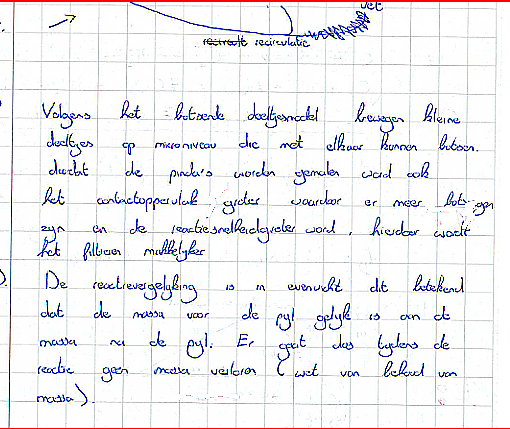 vet
recirculatie
Volgens het botsende deeltjesmodel bewegen kleine
deeltjes op microniveau die met elkaar kunnen botsen.
doordat de pinda's worden gemalen word ook
het contactoppervlak groter waardoor er meer botsingen
zijn en de reactiesnelheid groter word, hierdoor wordt
het filteren makkelijker
De reactievergelijking is in evenwicht dit betekend
dat de massa voor de pijl gelijk is aan de
massa na de pijl. Er gaat dus tijdens de
reactie geen massa verloren (wet van behoud van
massa).